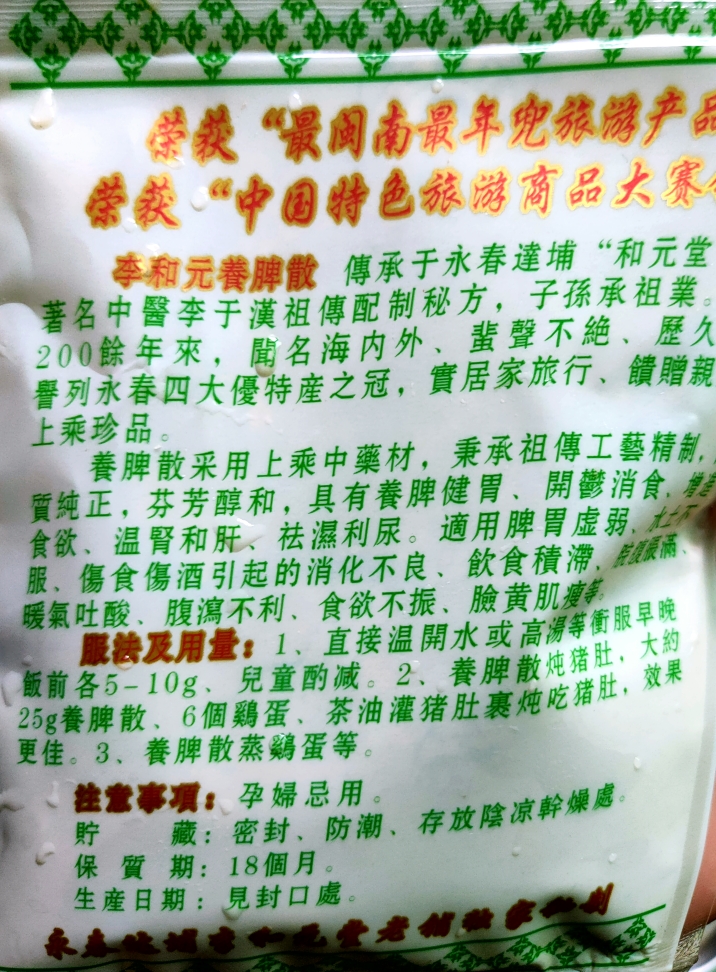 荣获“最闽南最年兜旅游产品
荣获“中国特色旅游商品大赛
李和元養脾散 傳承于永春達埔“和元堂
著名中醫李于漢祖傳配制秘方，子孫承祖業。
200餘年來，聞名海内外、蜚聲不絶、歷久
譽列永春四大優特産之冠，實居家旅行、饋贈親
上乘珍品。
養脾散采用上乘中藥材，秉承祖傳工藝精制，
質純正，芬芳醇和，具有養脾健胃、開鬱消食、增進
食欲、温腎和肝、祛濕利尿。適用脾胃虚弱、水土不
服、傷食傷酒引起的消化不良、飲食積滯、脹滿、
暖氣吐酸、腹瀉不利、食欲不振、臉黄肌瘦等。
服法及用量：1、直接温開水或高湯等衝服早晚
飯前各5-10g、兒童酌减。2、養脾散炖猪肚，大約
25g養脾散、6個鷄蛋、茶油灌猪肚裹炖吃猪肚，效果
更佳。3、養脾散蒸鷄蛋等。
注意事項：孕婦忌用。
貯藏：密封、防潮、存放陰凉幹燥處。
保質期：18個月。
生産日期：見封口處。
永春達埔李和元堂老鋪獨家秘制